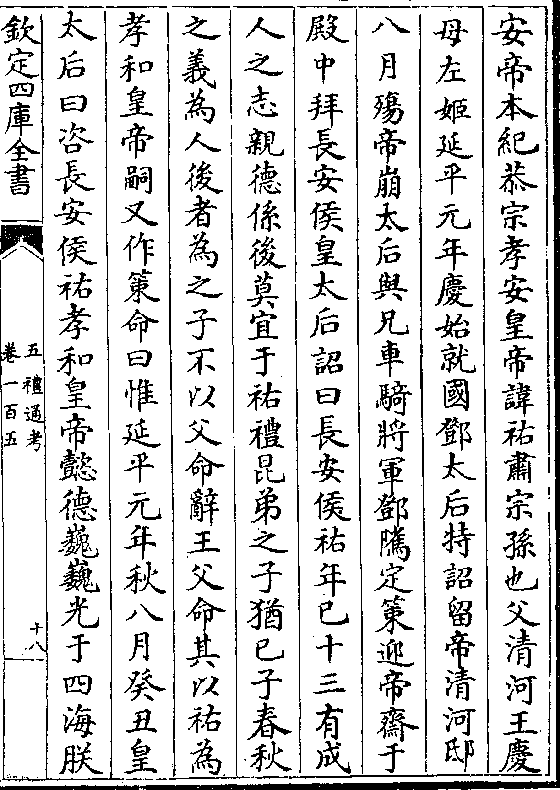 安帝本紀恭宗孝安皇帝諱祐肅宗孫也父清河王慶
母左姬延平元年慶始就國鄧太后特詔留帝清河邸
八月殤帝崩太后與兄車騎將軍鄧騭定策迎帝齋于
殿中拜長安侯皇太后詔曰長安侯祐年已十三有成
人之志親德係後莫宜于祐禮昆弟之子猶己子春秋
之義為人後者為之子不以父命辭王父命其以祐為
孝和皇帝嗣又作策命曰惟延平元年秋八月癸丑皇
太后曰咨長安侯祐孝和皇帝懿德巍巍光于四海朕
欽定四庫全書
五禮通考
卷一百五
十八